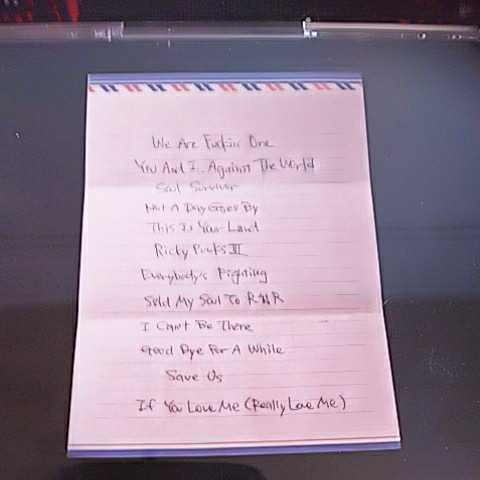 We Are Fuckin One
You And I.. Against The World
Soul Survivor
Not A Day Goes By
This Is Your Land
Ricky Picks III
Everybody's Fighting
Sold My Soul To R'N'R
I Can't Be There
Good Bye For A While
Save Us
If You Love Me (Really Love Me)